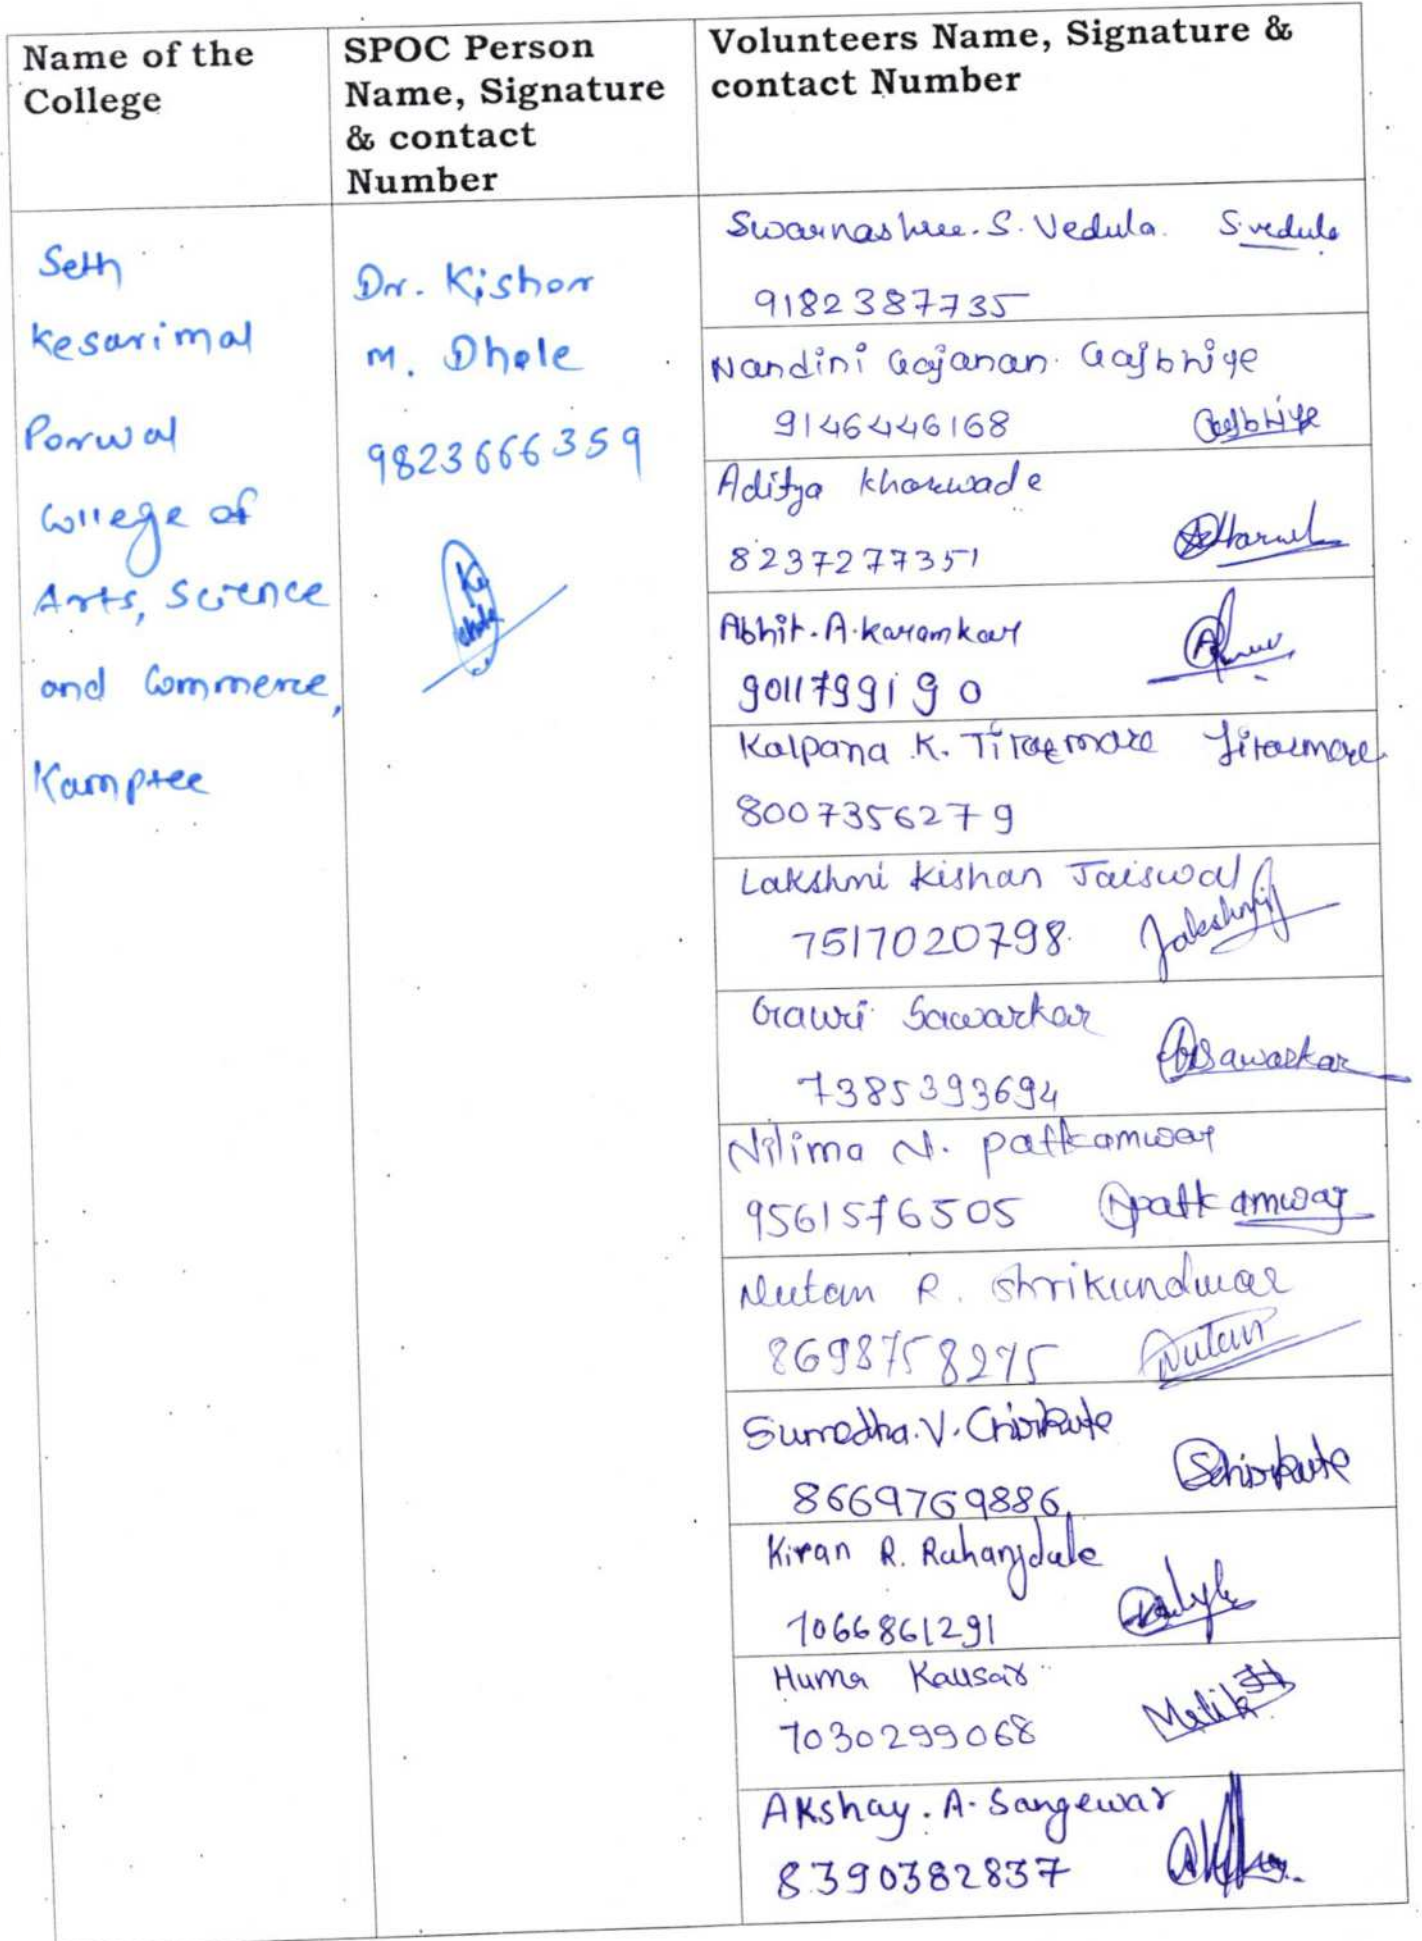 Name of the
College
SPOC Person
Name, Signature
& contact
Number
Volunteers Name, Signature &
contact Number
Seth
Kesarimal
Porwal
College of
Arts, Science
and Commerce,
Kamptee
Dr. Kishor
M. Dhole
9823666359
Swarnashree. S. Vedula. S.vedula
9182387735
Nandini Gajanan. Gajbhiye
9146446168 Gajbhiye
Aditya Kharwade
8237277351
Abhit. A. Karamkar
9011799190
Kalpana K. Tiraemare Tiraemare
8007356279
Lakshmi Kishan Jaiswal
7517020798.
Gauri Sawarkar
7385393694 GSawarkar
Nilima N. patkamwar
9561576505 Npatkamwar
Nutan R. Shrikundwar
8698758275 Nutan
Sumedha. V. Chirkute
8669769886 SChirkute
Kiran R. Rahangdale
7066861291
Huma Kausar
7030299068 Malik H
Akshay. A. Sangewar
8390382837